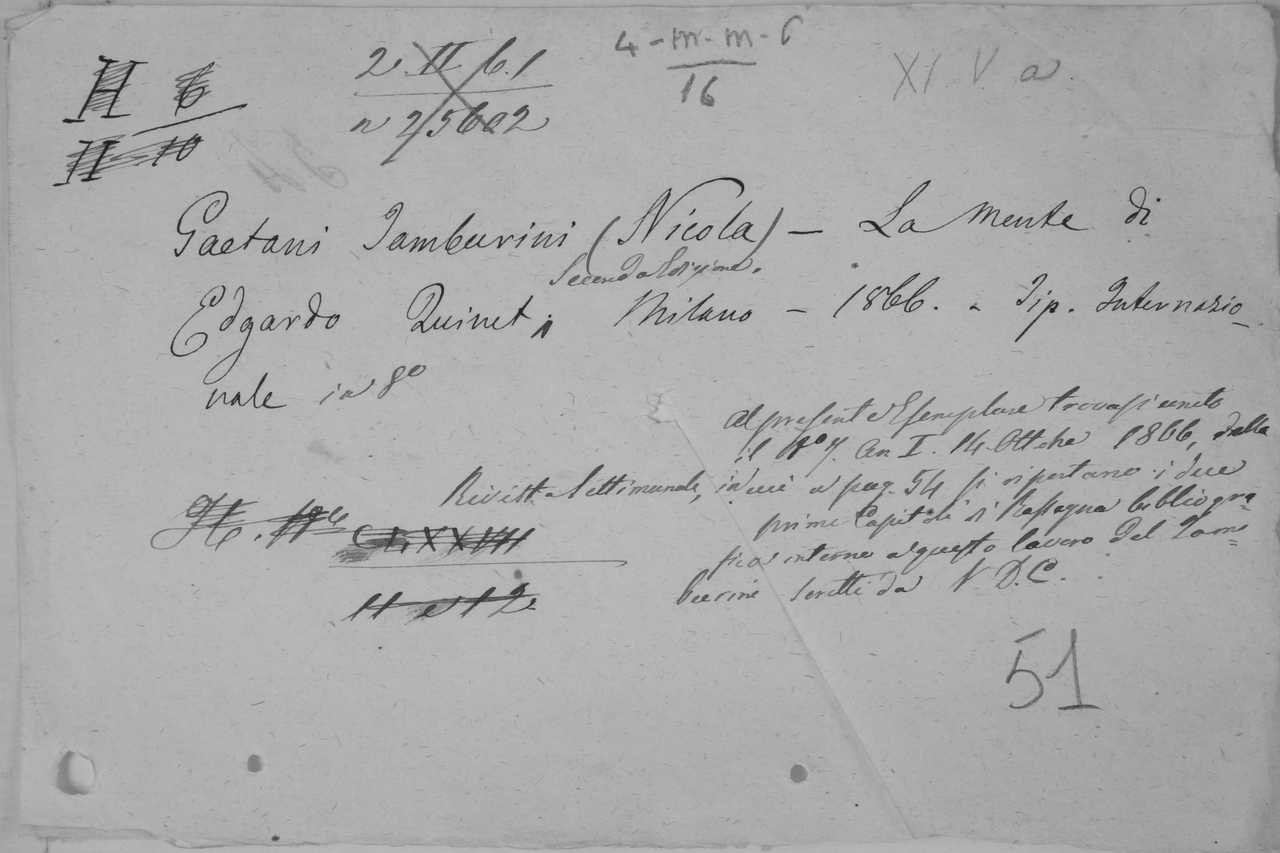 H 6
H. 10
2. II 6. 1
n 25602
4-m-m-6
16
XI V a
Gaetani Tamburini (Nicola) — La Mente di
Seconda Edizione.
Edgardo Quinet; Milano — 1866. - Tip. Internazio-
nale in 8º
Al presente Esemplare trovasi unito
il Nº 7. An I. 14 Ottobre 1866, della
Rivista Settimanale, in cui a pag. 54 si riportano i due
primi Capitoli di Rassegna bibliogra=
fica intorno a questo lavoro del Tam=
burini scritti da N. D. C.
CLXXVIII
11 e 12
51